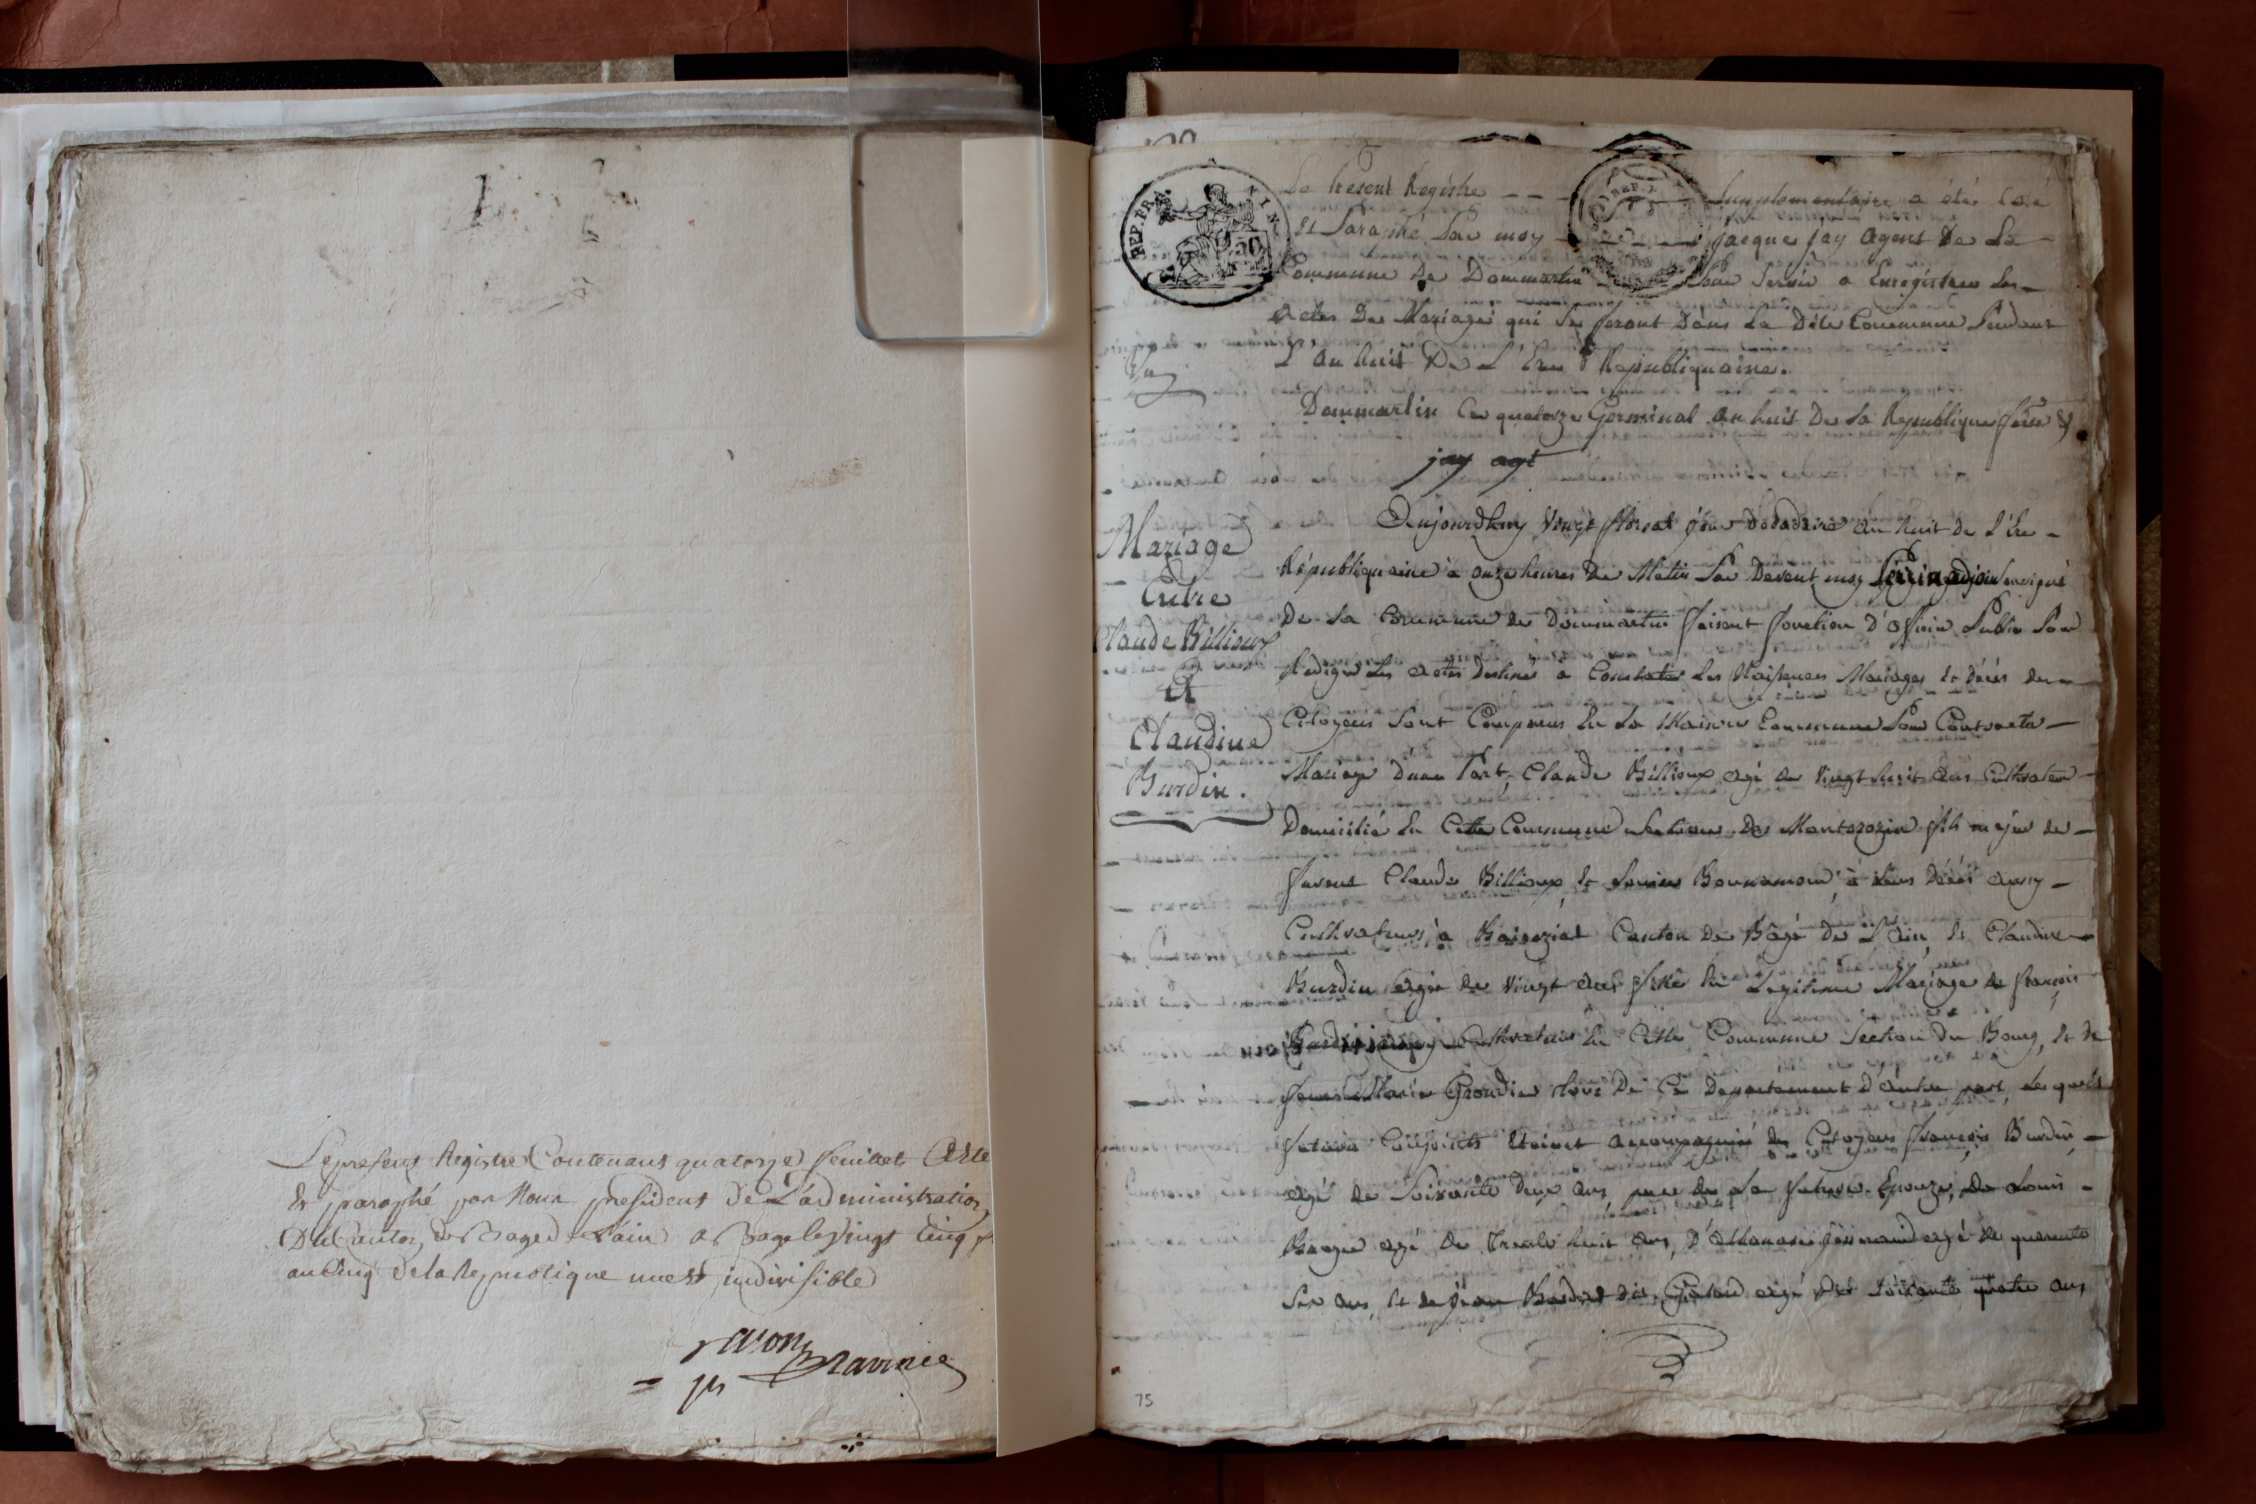 Le present Registre Contenant quatorze feuillet Cotté
Et paraphé par Nous president De L'administration
Du Canton de Bage de L'ain a Bage le Vingt Cinq
an Cinq de la Republique une et indivisible
REP. FRA.
Le Présent Registre - - - Supplémentaire a été Coté
Et Paraphé Par moy Jacque Jay Agent De La
Commune De Dommartin Pour Servir a Enregistrer Les
Actes De Mariages qui Se feront Dans La Dite Commune Pendant
L'an huit De L'Ere Républiquaine.
Dommartin Ce quatorze Germinal an huit De La Republique
jay agt
Mariage
Entre
Claude Billioux
Et
Claudine
Burdin.
Aujourdhuy Vingt floreal jour Décadaire an huit de l'Ere
Républiquaine à onze heures du Matin Par Devant moy adjoint
De La Commune de Dommartin faisant fonction d'oficier Public Pour
Rédiger Les actes destinés a Constater Les Naissances Mariages et décés des
Citoyens Sont Comparus En La Maison Commune Pour Contracter
Mariage D'une Part, Claude Billioux agé de Vingt huit ans Cultivateur
Domicilié En Cette Commune Section De Montozozin fils majeur de
Claude Billioux Et Bonnamour à leurs Décés
Cultivateurs à Canton De Bâgé de L'Ain, Et Claudine
Burdin agée de Vingt ans fille En Légitime Mariage de françois
Cultivateur En Cette Commune Section Du Bourg, et de
Marie De Ce Departement d'autre part, Les quels
futurs Conjoints Etoient accompagnés des Citoyens françois Burdin,
agé de Soixante Deux ans, pere de La future Epouze, De Louis
agé De Trente huit ans, D'Athanase agé de quarente
Six ans, et de Jean dit agé De Soixante quatre ans
75